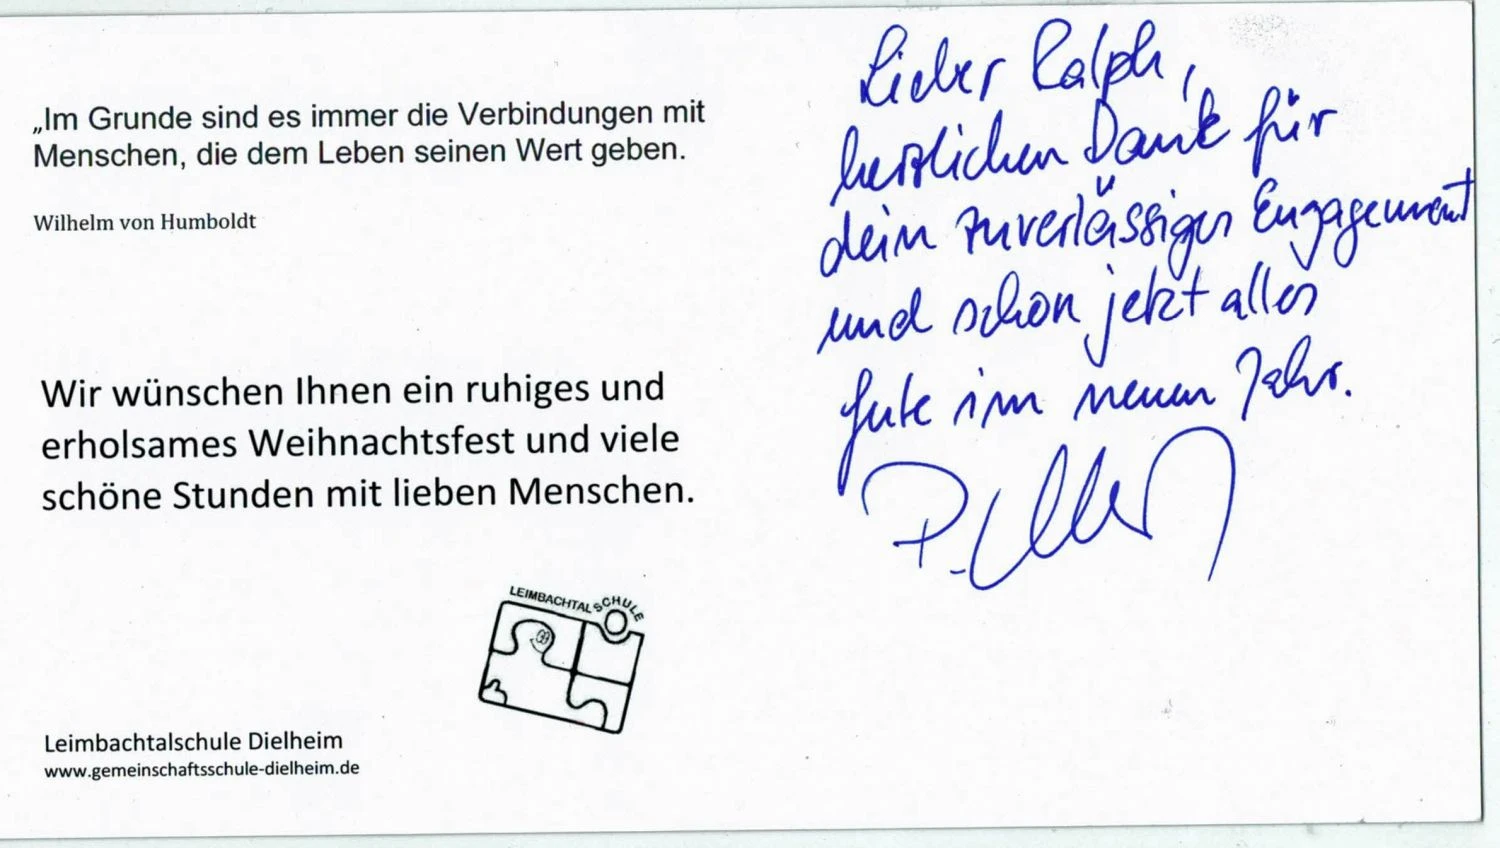 „Im Grunde sind es immer die Verbindungen mit
Menschen, die dem Leben seinen Wert geben.
Wilhelm von Humboldt
Wir wünschen Ihnen ein ruhiges und
erholsames Weihnachtsfest und viele
schöne Stunden mit lieben Menschen.
LEIMBACHTALSCHULE
Leimbachtalschule Dielheim
www.gemeinschaftsschule-dielheim.de
Lieber Ralph,
herzlichen Dank für
dein zuverlässiges Engagement
und schon jetzt alles
gute im neuen Jahr.